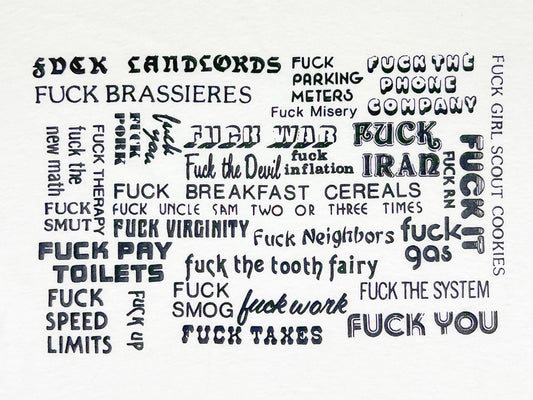 FUCK LANDLORDS
FUCK
PARKING
METERS
FUCK THE
PHONE
COMPANY
FUCK GIRL SCOUT COOKIES
FUCK BRASSIERES
Fuck Misery
FUCK THERAPY
fuck the
new math
FUCK
PORK
fuck
you
FUCK WAR
FUCK
IRAN
FUCK IT
FUCK RN
Fuck the Devil
fuck
inflation
FUCK BREAKFAST CEREALS
FUCK
SMUT
FUCK UNCLE SAM TWO OR THREE TIMES
FUCK VIRGINITY
Fuck Neighbors
fuck
gas
FUCK PAY
TOILETS
fuck the tooth fairy
FUCK
SPEED
LIMITS
FUCK UP
FUCK
SMOG
fuck work
FUCK THE SYSTEM
FUCK TAXES
FUCK YOU